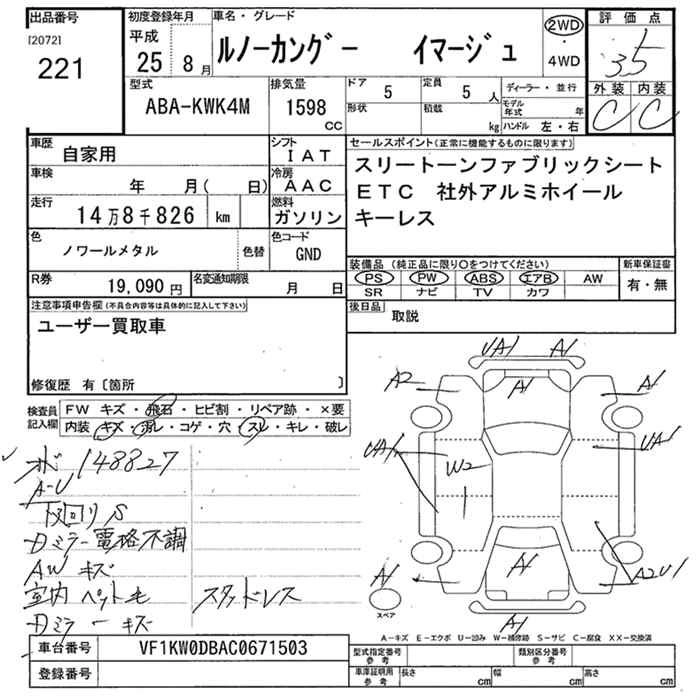 出品番号 初度登録年月 車名・グレード 評価点
[2072]
221
平成 25 8月
ルノーカングー イマージュ
2WD・4WD
3.5
型式 ABA-KWK4M
排気量 1598 CC
ドア 5 定員 5人
形状 積載 kg
ディーラー・並行
モデル年式 年
ハンドル 左・右
外装 内装
C C
車歴 自家用
シフト IAT
セールスポイント(正常に機能するものに限ります)
スリートーンファブリックシート
車検 年 月( 日)
冷房 AAC
ETC 社外アルミホイール
走行 14万8千826 km
燃料 ガソリン
キーレス
色 ノワールメタル 色替
色コード GND
装備品(純正品に限り○をつけてください) 新車保証書
PS PW ABS エアB AW 有・無
SR ナビ TV カワ
R券 19,090円 名変通知期限 月 日
後日品 取説
注意事項申告欄(不具合内容等は具体的に記入して下さい)
ユーザー買取車
修復歴 有〔箇所 〕
検査員記入欄
FW キズ・飛石・ヒビ割・リペア跡・×要
内装 キズ・汚レ・コゲ・穴・スレ・キレ・破レ
UA1 A1
A2 A1 A1
UA1 W2 UA1
A1 A1 A2U1
A1
スペア
148827
A-U
下回りS
Dミラー電格不調
AWキズ
室内ペット毛 スタッドレス
Dミラーキズ
A-キズ E-エクボ U-凹み W-補修跡 S-サビ C-腐食 XX-交換済
車台番号 VF1KW0DBAC0671503
型式指定番号 参考 類別区分番号 参考
登録番号
車庫証明用 参考 長さ cm 幅 cm 高さ cm